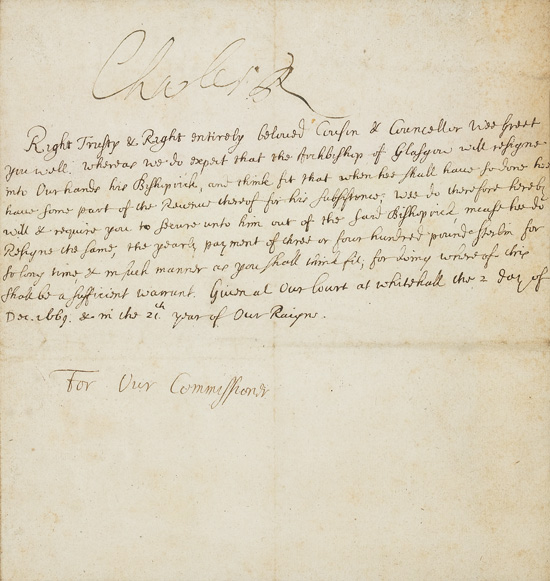 Charles R
Right Trusty & Right entirely beloved Cousin & Councellor Wee Greet
you well. Whereas we do expect that the Archbishop of Glasgow will resigne
into Our hands his Bishoprick, and think fit that when hee shall have so done hee
have some part of the Revenue thereof for his subsistence; Wee do therefore hereby
will & require you to secure unto him out of the said Bishoprick, incase hee do
Resigne the same, the yearly payment of three or four hundred pounds sterlin for
so long time & in such manner as you shall think fit, for doing whereof this
shall be a sufficient warrant. Given at Our Court at Whitehall the 2 day of
Dec. 1669. & in the 21th year of Our Raigne.
For Our Commissioner